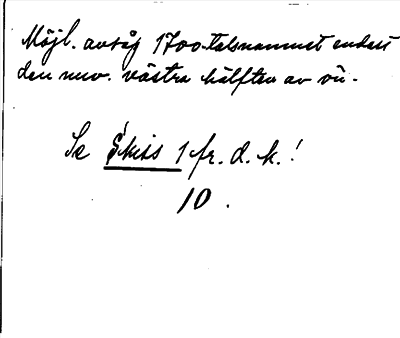 Möjl. avsåg 1700-talsnamnet endast
den nuv. västra hälften av ön.
Se Skiss 1 fr. d. k.!
10.